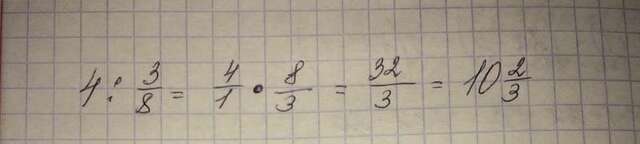 4 : 3/8 = 4/1 • 8/3 = 32/3 = 10 2/3